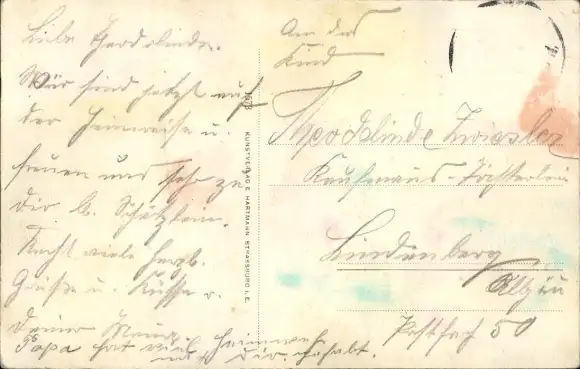 Liebe Theodolinde.
Wir sind jetzt auf
der Heimreise u.
freuen uns sehr zu
Dir lb. Schätzlein.
Recht viele herzl.
Grüsse u. Küsse v.
Deiner Mama
Papa hat viel Heimweh
nach Dir gehabt.
1678
KUNSTVERLAG E. HARTMANN STRASSBURG I. E.
An das
Kind
Theodolinde Zwiesler
Kaufmanns-Töchterlein
Lindenberg
Allgäu
Postfach 50